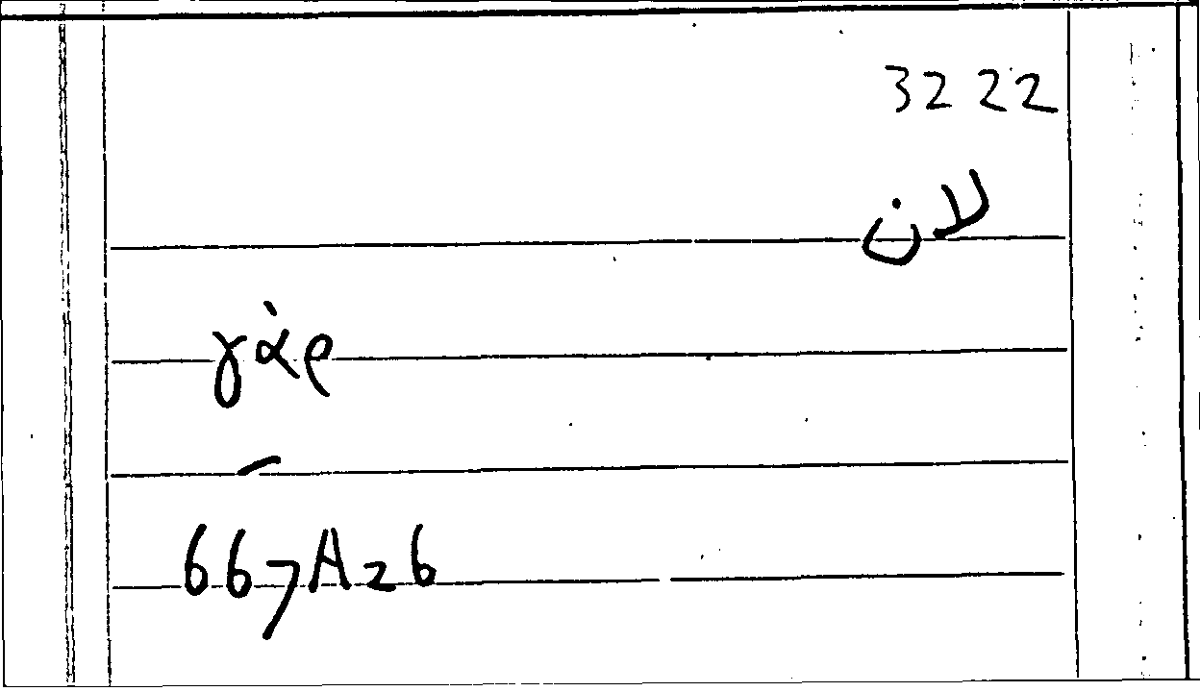 3222
لان
γὰρ
–
667A26